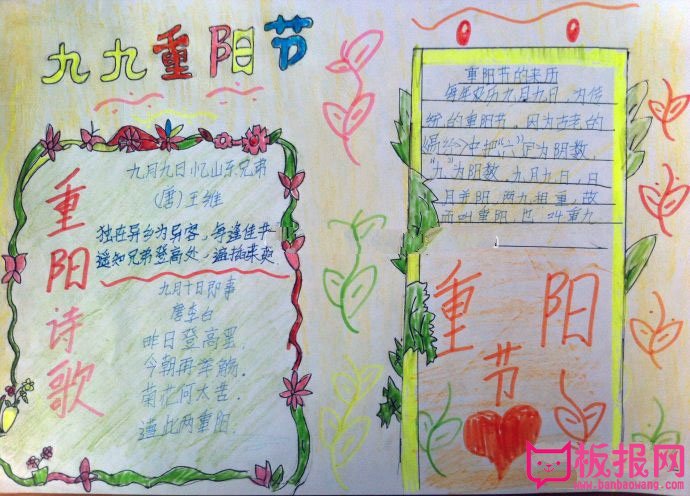 九九重阳节
重阳诗歌
九月九日忆山东兄弟
(唐)王维
独在异乡为异客，每逢佳节
遥知兄弟登高处，遍插茱萸
九月十日即事
唐李白
昨日登高罢，
今朝再举觞.
菊花何太苦.
遭此两重阳.
重阳节的来历
每年农历九月九日，为传
统的重阳节，因为古老的
中把“六”定为阴数，
“九”为阳数，九月九日，日
月并阳，两九相重，故
而叫重阳，叫重九
重阳
节
板报网
www.banbaowang.com